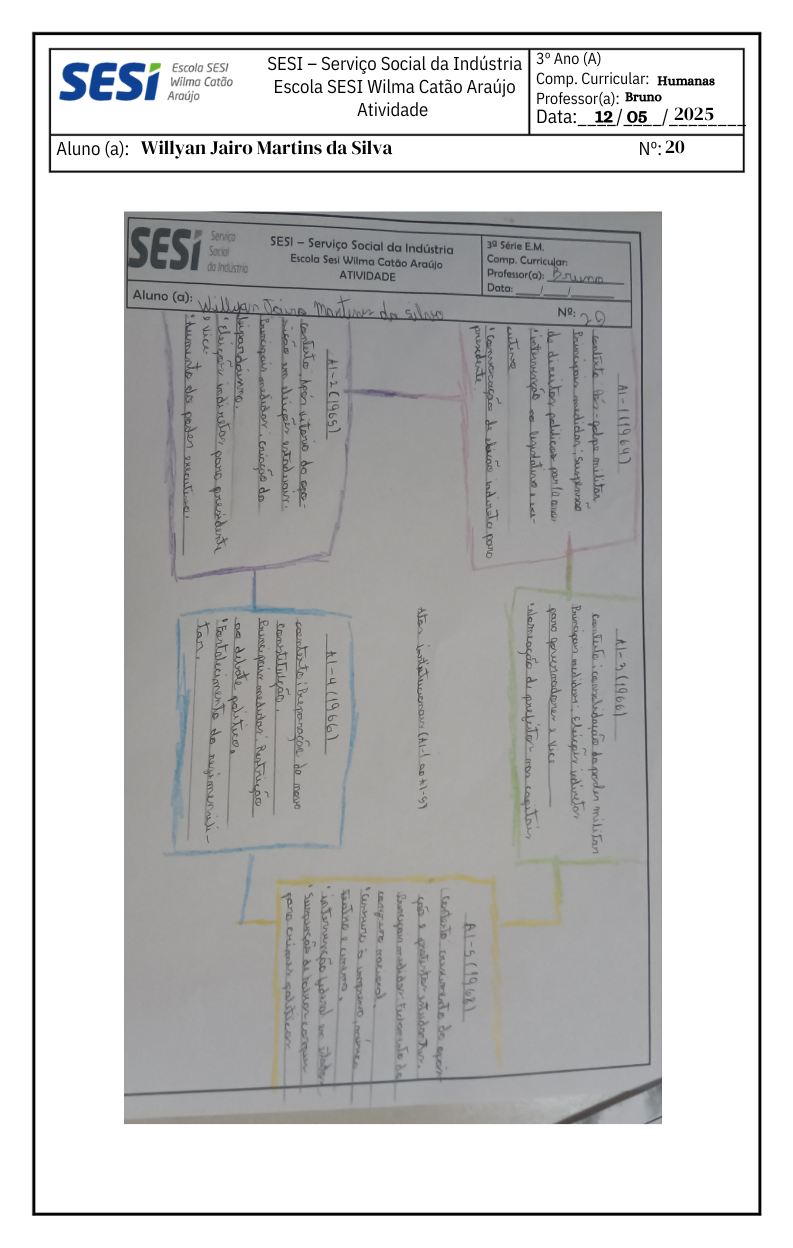 SESI
Escola SESI
Wilma Catão
Araújo
SESI – Serviço Social da Indústria
Escola SESI Wilma Catão Araújo
Atividade
3º Ano (A)
Comp. Curricular: Humanas
Professor(a): Bruno
Data:____12/_05___/_2025_______
Aluno (a): Willyan Jairo Martins da Silva
Nº: 20
SESI
Serviço
Social
da Indústria
SESI – Serviço Social da Indústria
Escola Sesi Wilma Catão Araújo
ATIVIDADE
3ª Série E.M.
Comp. Curricular:
Professor(a): Bruno
Data: ____/____/________
Aluno (a): Willyan Jairo Martins da Silva
Nº:
AI-1 (1964)
contexto Pós-golpe militar
Principais medidas: suspensão
de direitos políticos por 10 anos
intervenção no legislativo e exe-
cutivo
convocação de eleição indireta para
presidente
AI-2 (1965)
contexto: Após vitória da opo-
sição em eleições estaduais.
Principais medidas: criação do
bipardarismo.
Eleições indiretas para presidente
e vice.
Aumento do poder executivo.
AI-3 (1966)
contexto: consolidação do poder militar
Principais medidas: eleições indiretas
para governadores e vice
Nomeação de prefeitos nas capitais
Atos institucionais (AI-1 ao AI-5)
AI-4 (1966)
contexto: Preparação da nova
constituição.
Principais medidas: Restrição
ao debate político.
Fortalecimento do regime mili-
tar.
AI-5 (1968)
contexto crescimento da oposi-
ção e protestos estudantis.
Principais medidas: Fechamento do
congresso nacional.
censura à imprensa, música
teatro e cinema.
intervenção federal em estados
suspensão de habeas corpus
para crimes políticos